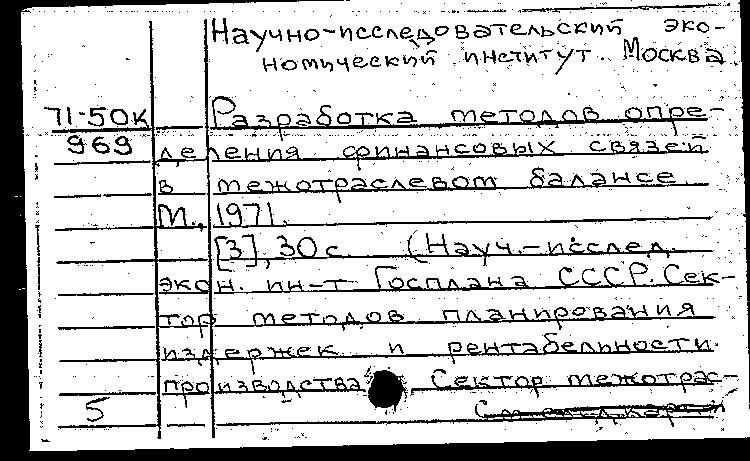 Научно-исследовательский эко-
номический институт. Москва
71-50К Разработка методов опре-
969 деления финансовых связей
в межотраслевом балансе.
М., 1971.
[3], 30 с. (Науч.-исслед.
экон. ин-т Госплана СССР. Сек-
тор методов планирования
издержек и рентабельности
производства. Сектор межотрас-
5 См. след. карт.